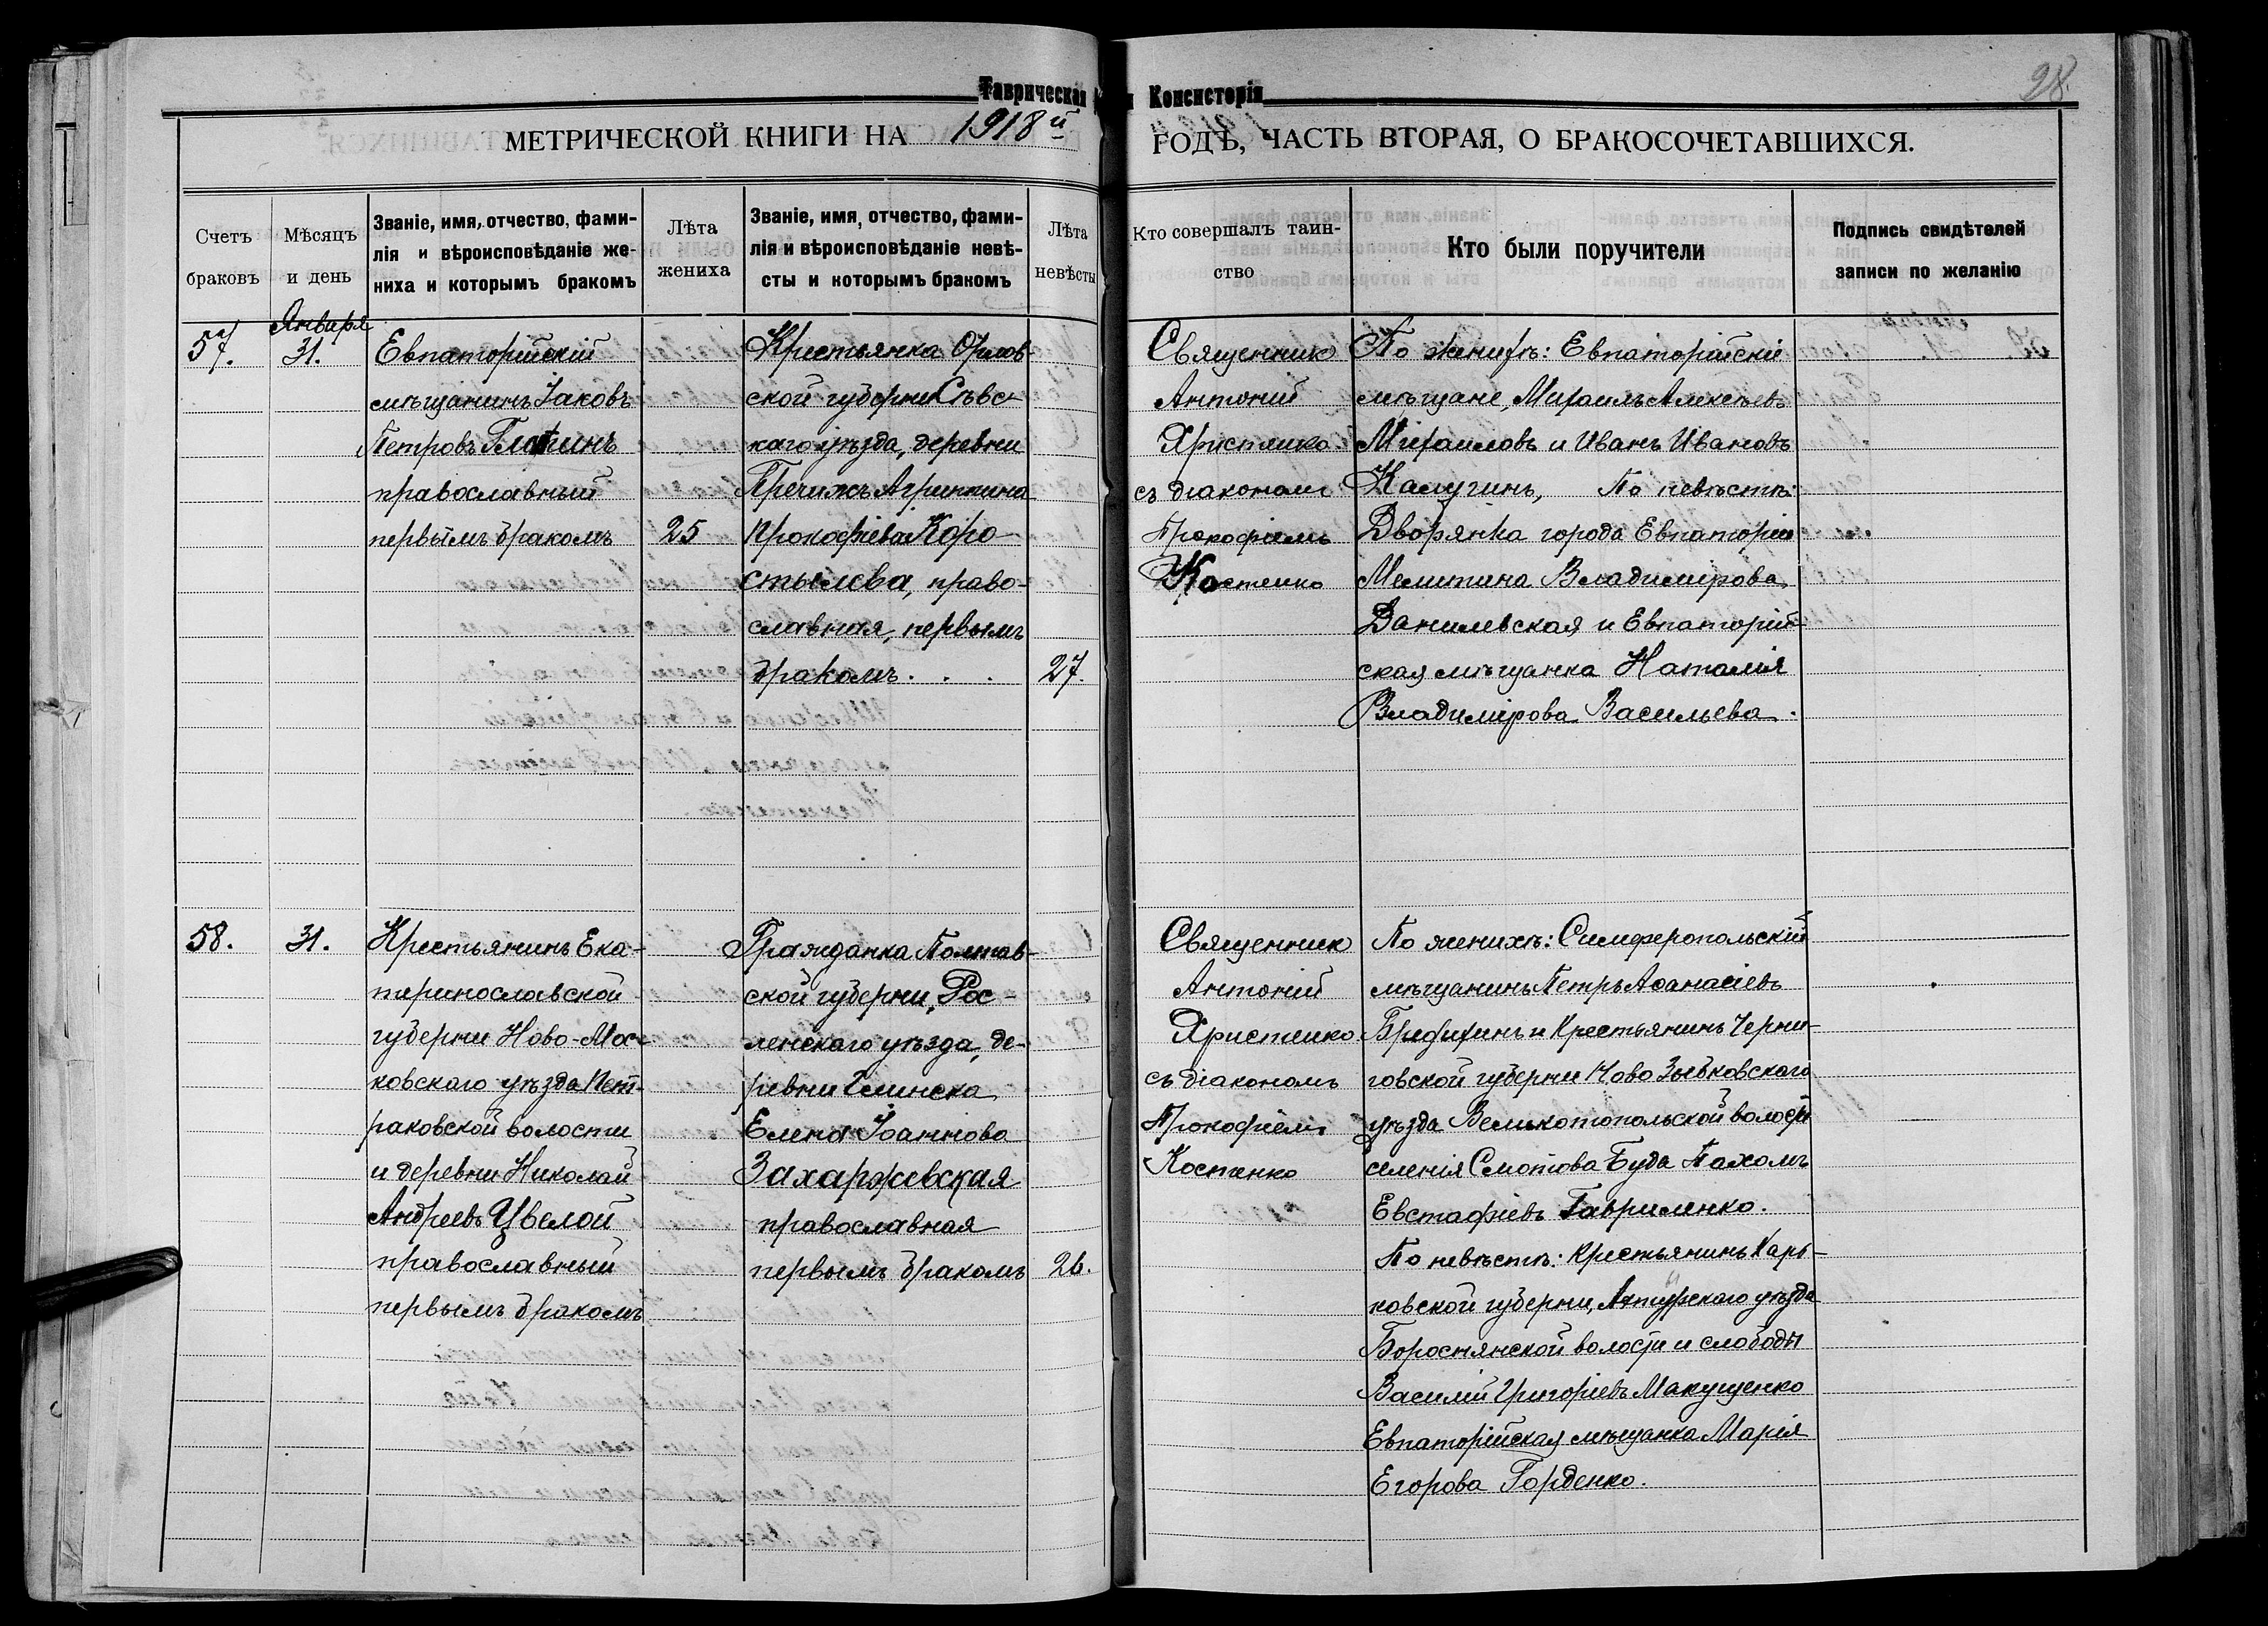 Таврическая
Консисторія
28.
МЕТРИЧЕСКОЙ КНИГИ НА 1918й
ГОДЪ, ЧАСТЬ ВТОРАЯ, О БРАКОСОЧЕТАВШИХСЯ.
Счетъ
браковъ
Мѣсяцъ
и день
Званіе, имя, отчество, фами-
лія и вѣроисповѣданіе же-
ниха и которымъ бракомъ
Лѣта
жениха
Званіе, имя, отчество, фами-
лія и вѣроисповѣданіе невѣ-
сты и которымъ бракомъ
Лѣта
невѣсты
Кто совершалъ таин-
ство
Кто были поручители
Подпись свидѣтелей
записи по желанію
57.
Января
31.
Евпаторійскій
мѣщанинъ Іаковъ
Петровъ
православный
первымъ бракомъ
25
Крестьянка Орлов-
ской губерни Сѣвс-
каго уѣзда, деревни
Агриппина
Прокофіева Коро-
стылева, право-
славная, первымъ
бракомъ . . .
27.
Священникъ
Антоній
Христенко
съ діакономъ
Прокофіемъ
Костенко
По женихѣ: Евпаторійскіе
мѣщане, Михаилъ Алексѣевъ
Михаиловъ и Иванъ Ивановъ
Калугинъ, По невѣстѣ:
Дворянка города Евпаторіи
Мелитина Владимірова
Данилевская и Евпаторій-
ская мѣщанка Наталія
Владимірова Васильева.
58.
31.
Крестьянинъ Ека-
теринославской
губерни Ново-Мос-
ковскаго уѣзда Пет-
раковской волости
и деревни Николай
Андреевъ Цвелой
православный
первымъ бракомъ
Гражданка Полтав-
ской губерни, Рос-
ленскаго уѣзда, де-
ревни Глинска
Елена Іоаннова
Захаржевская
православная
первымъ бракомъ
26.
Священникъ
Антоній
Христенко
съ діакономъ
Прокофіемъ
Костенко
По женихѣ: Симферопольскій
мѣщанинъ Петръ Аѳанасіевъ
Бредихинъ и Крестьянинъ Черни-
говской губерни Ново Зыбковскаго
уѣзда Великотопольской волости
селенія Смотова Буда Пахомъ
Евстафіевъ Гавриленко.
По невѣстѣ: Крестьянинъ Харь-
ковской губерни, Ахтырскаго уѣзда
Боромлянской волости и слободы
Василій Григоріевъ Макущенко
Евпаторійская мѣщанка Марія
Егорова Горденко.